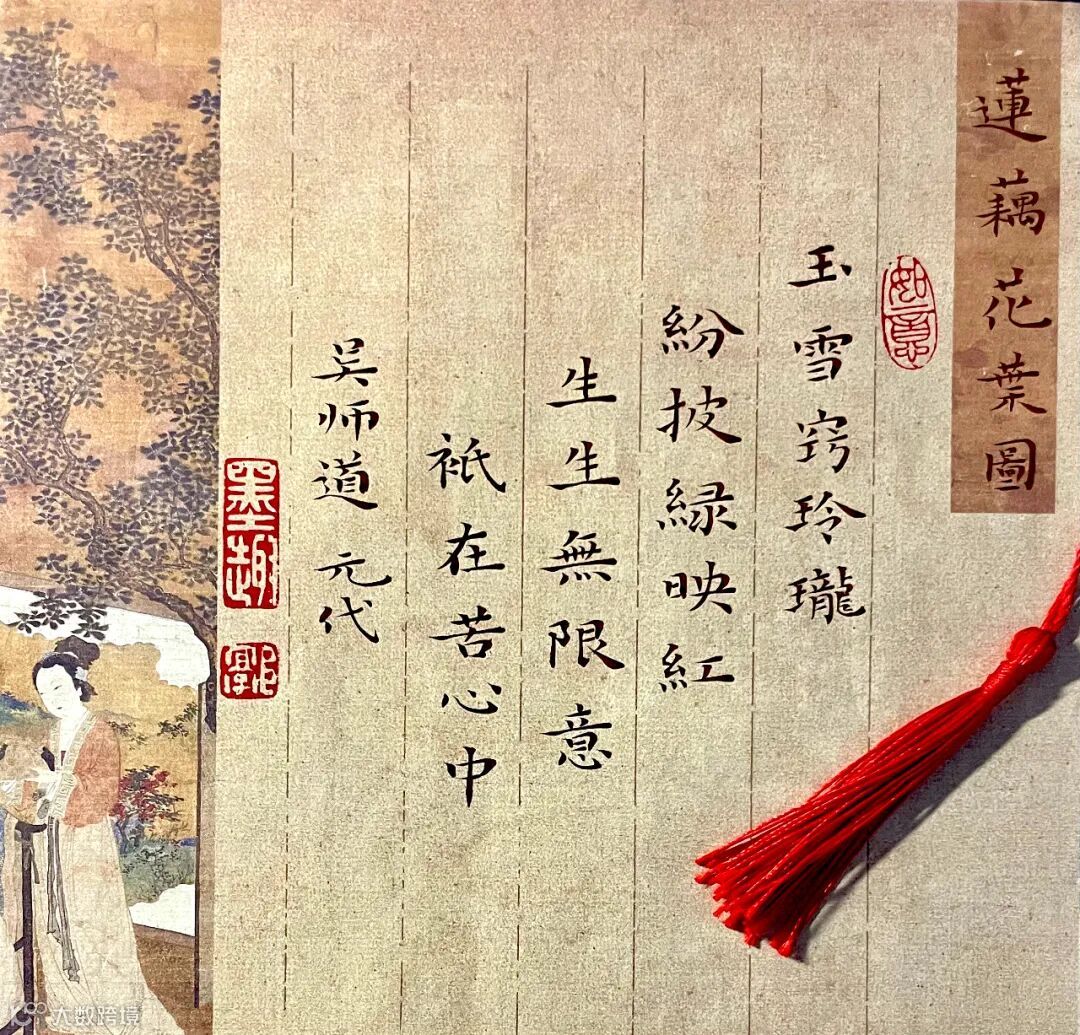 蓮藕花葉圖
如意
玉雪窍玲瓏
紛披緑映紅
生生無限意
祇在苦心中
吴师道 元代
墨趣
郭
大数跨境